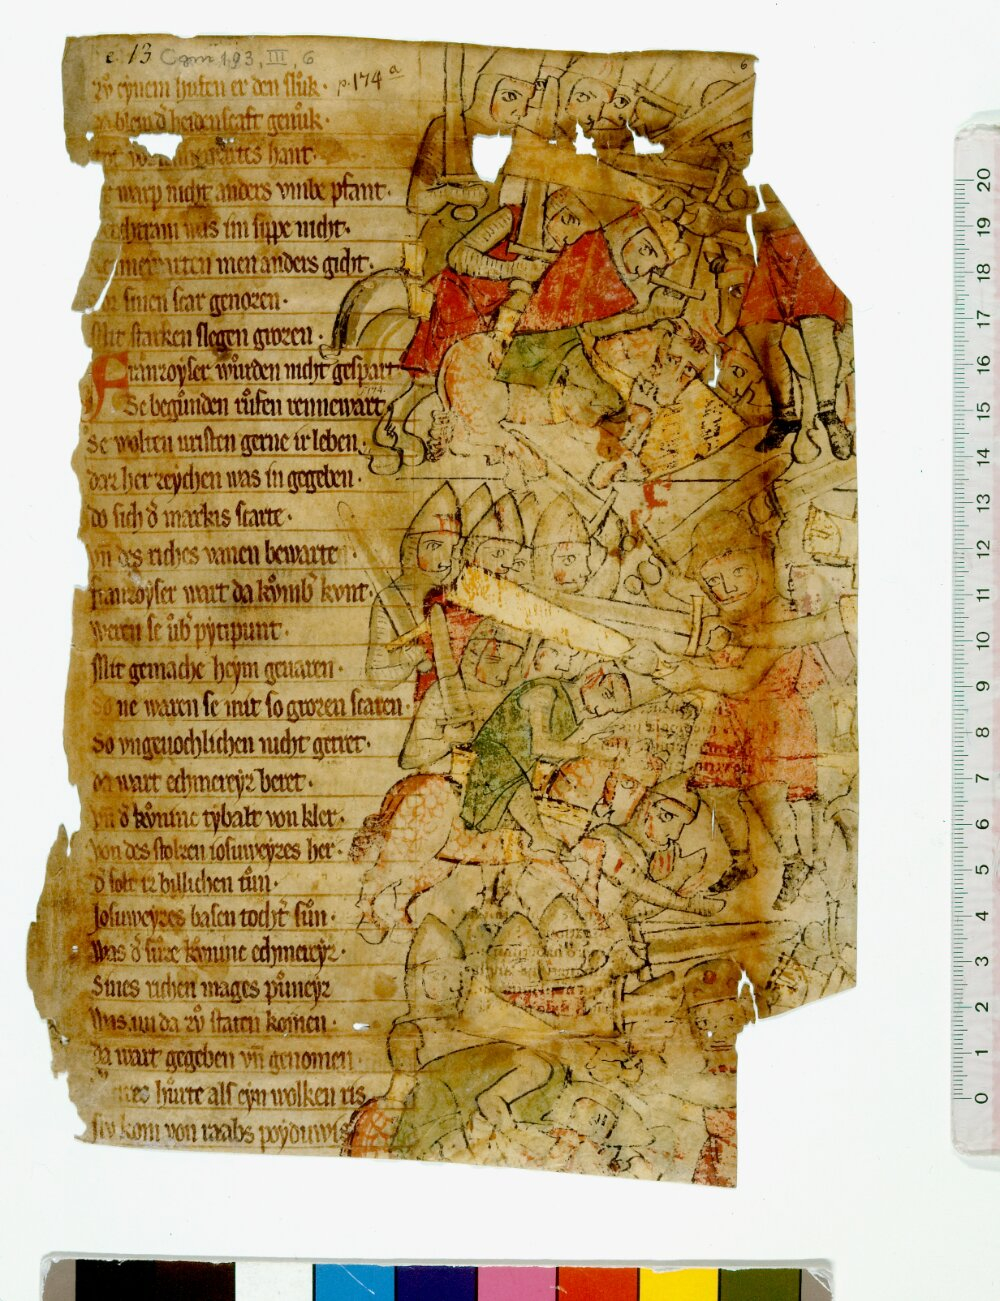 e. 13 Cgm 193, III, 6
p. 174 a
6
zv̊ eynem hufen er den sluk·
heidenscaft genuk·
hant·
warp nicht anders vmbe pfant·
was im sippe nicht·
men anders gicht·
sinen scar genozen·
Mit starken slegen grozen·
Franzoyser wůrden nicht gespart
Se begůnden růfen rennewart
Se wolten vristen gerne ir leben·
daz her zeychen was in gegeben·
do sich d̉ markis scarte·
vn̄ des riches vanen bewarte·
franzoyser wart da kůmb̉ kvnt·
weren se ůb̉ pytipunt·
Mit gemache heym geuaren·
So ne waren se mit so grozen scaren·
So vngeuochlichen nicht getret·
da wart echmereyz beret·
vn̄ d̉ kůninc tybalt von kler·
von des stolzen iosuweyzes her·
d̉ solt iz billichen tůn·
Josuweyzes basen tocht̉ sůn·
Was d̉ fůrste kůninc echmereyz·
Sines richen mages půneyz
Was nu da zv̊ staten komen·
da wart gegeben vn̄ genomen
hurte als eyn wolken ris
kom von raabs poyduwis
20
19
18
17
16
15
14
13
12
11
10
9
8
7
6
5
4
3
2
1
0